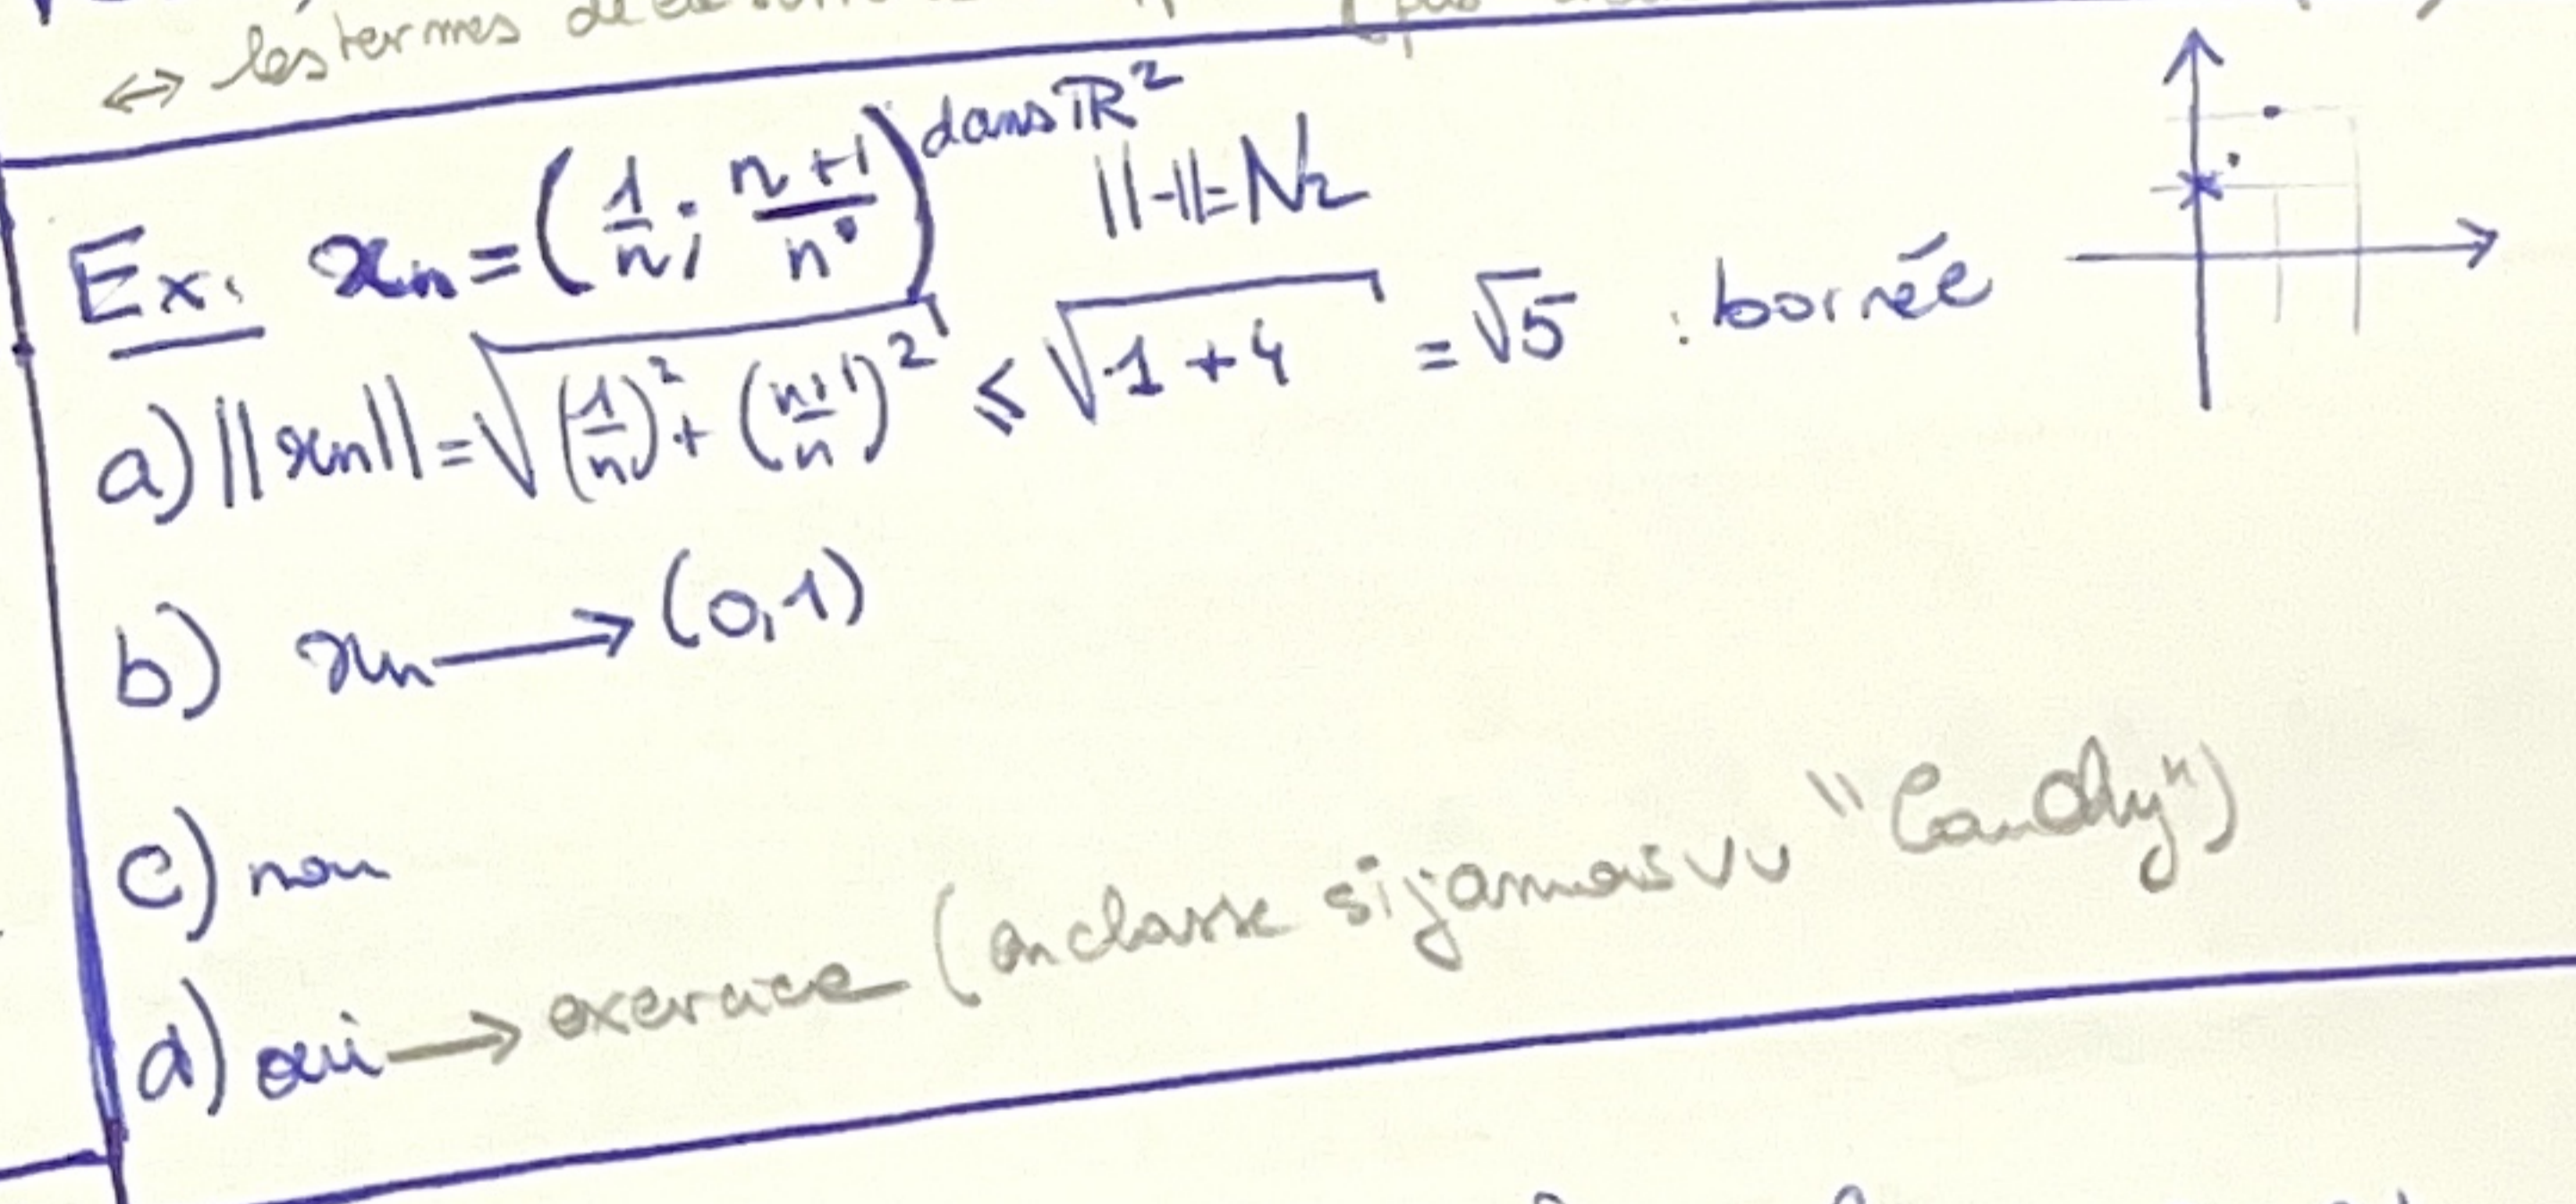 ↔ les termes de
Ex. xn = (1/n ; n+1/n) dans ℝ² ||·|| = N₂
a) ||xn|| = √((1/n)² + (n+1/n)²) ≤ √(1+4) = √5 : bornée
b) xn → (0,1)
c) non
d) oui → exercice (en classe si jamais vu "Cauchy")